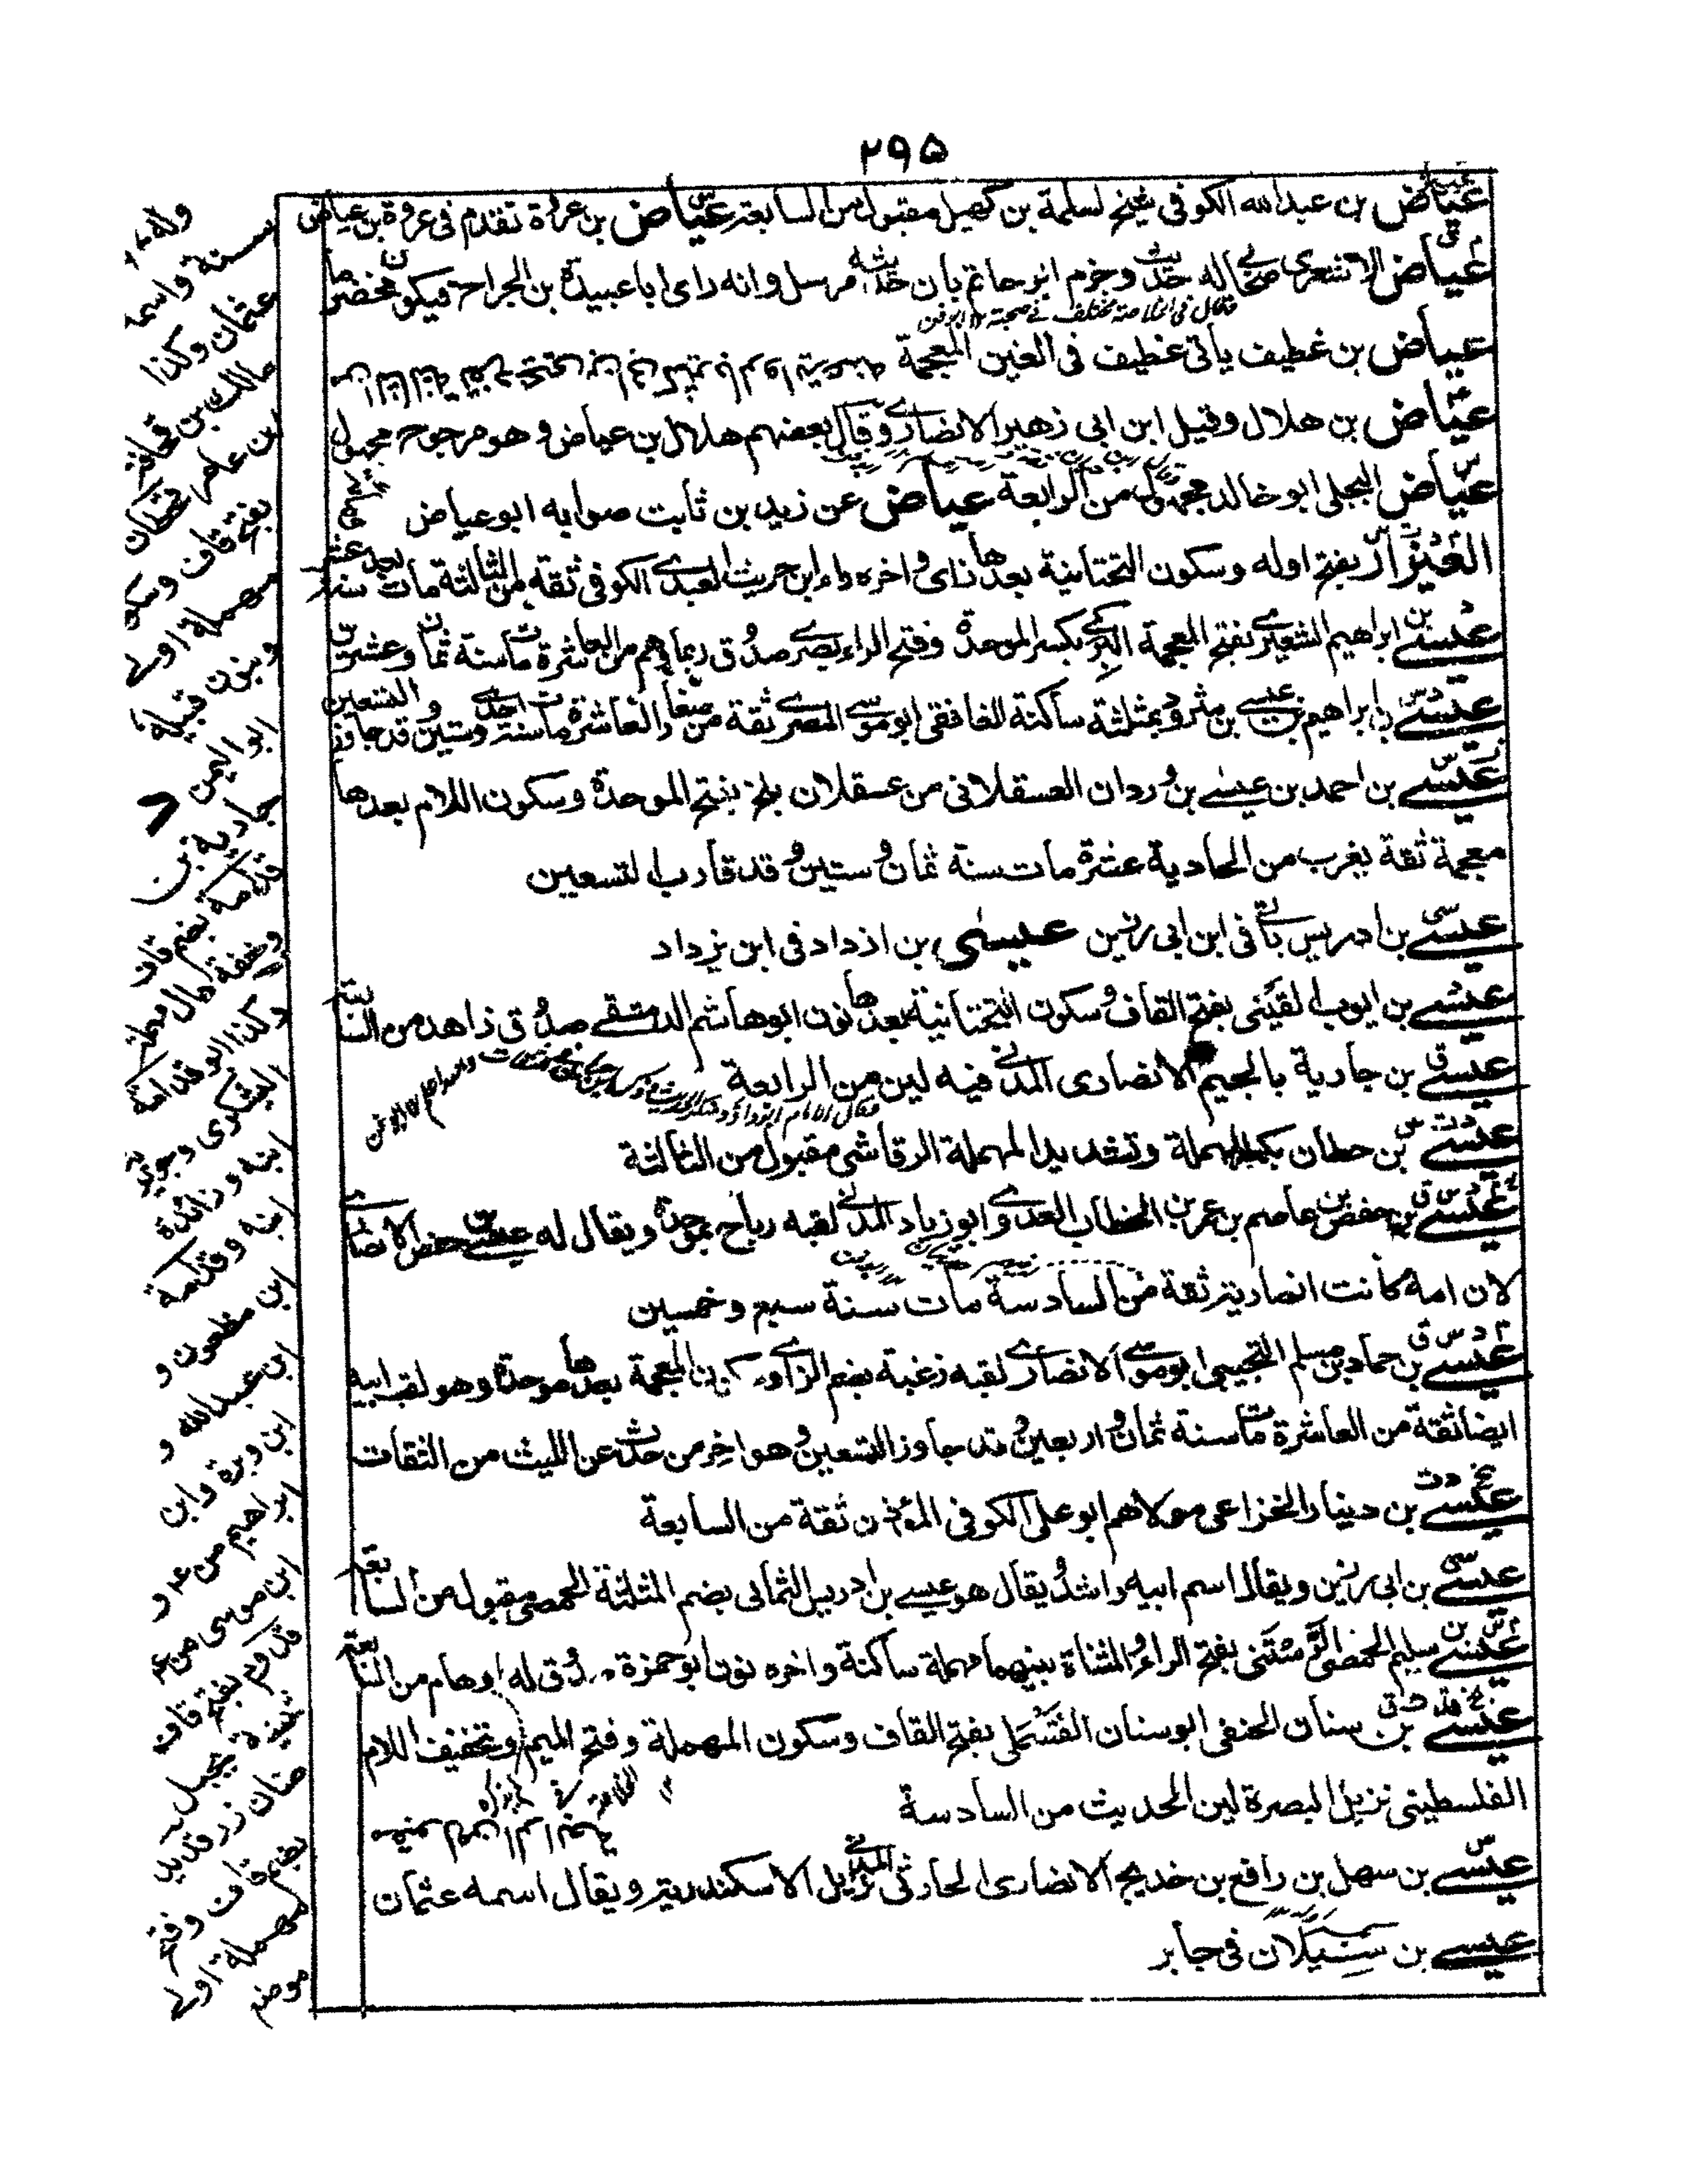 ٢٩٥
عياض بن عبدالله الكوفى شيخ لسلمة بن كهيل مقبول من السابعة عياض بن عروة تقدم فى عروة بن عياض
عياض الاشعرى صحابى له حديث وجزم ابو حاتم بان حديثه مرسل وانه راى ابا عبيدة بن الجراح فيكون مخضرما
عياض بن غطيف ياتى غطيف فى الغين المعجمة
عياض بن هلال وقيل ابن ابى زهير الانصارى وقال بعضهم هلال بن عياض وهو مرجوح مجهول
عياض البجلى ابو خالد مجهول من الرابعة عياض عن زيد بن ثابت صوابه ابو عياض
العيزار بفتح اوله وسكون التحتانية بعدها زاى واخره راء ابن حريث العبدى الكوفى ثقة من الثالثة مات بعد سنة عشر
عيسى بن ابراهيم الشعيرى بفتح المعجمة البركى بكسر الموحدة وفتح الراء بصرى صدوق ربما وهم من العاشرة مات سنة ثمان وعشرين
عيسى بن ابراهيم بن عيسى بن مثرود بمثلثة ساكنة الغافقى ابو موسى المصرى ثقة من صغار العاشرة مات سنة احدى وستين وقد جاوز التسعين
عيسى بن احمد بن عيسى بن وردان العسقلانى من عسقلان بلخ بفتح الموحدة وسكون اللام بعدها
معجمة ثقة يغرب من الحادية عشرة مات سنة ثمان وستين وقد قارب التسعين
عيسى بن ادريس ياتى فى ابن ابى رزين عيسى بن ازداد فى ابن يزداد
عيسى بن ايوب القينى بفتح القاف وسكون التحتانية بعدها نون ابو هاشم الدمشقى صدوق زاهد من السابعة
عيسى بن جارية بالجيم الانصارى المدنى فيه لين من الرابعة
عيسى بن حطان بكسر المهملة وتشديد المهملة الرقاشى مقبول من الثالثة
عيسى بن حفص بن عاصم بن عمر بن الخطاب العدوى ابو زياد المدنى لقبه رباح بموحدة ويقال له عيسى بن حفص الانصارى
لان امه كانت انصارية ثقة من السادسة مات سنة سبع وخمسين
عيسى بن حماد بن مسلم التجيبى ابو موسى الانصارى لقبه زغبة بضم الزاى وسكون المعجمة بعدها موحدة وهو لقب ابيه
ايضا ثقة من العاشرة مات سنة ثمان واربعين وقد جاوز التسعين وهو اخر من حدث عن الليث من الثقات
عيسى بن دينار الخزاعى مولاهم ابو على الكوفى المؤذن ثقة من السابعة
عيسى بن ابى رزين ويقال اسم ابيه راشد ويقال هو عيسى بن ادريس الثمالى بضم المثلثة الحمصى مقبول من السابعة
عيسى بن سليم الحمصى الرستنى بفتح الراء والمثناة بينهما مهملة ساكنة واخره نون ابو حمزة صدوق له اوهام من السابعة
عيسى بن سنان الحنفى ابو سنان القسملى بفتح القاف وسكون المهملة وفتح الميم وتخفيف اللام
الفلسطينى نزيل البصرة لين الحديث من السادسة
عيسى بن سهل بن رافع بن خديج الانصارى الحارثى المدنى نزيل الاسكندرية ويقال اسمه عثمان
عيسى بن سيلان فى جابر
سنة واسم
عثمان وكذا
مالك بن قحافة
ابن عامر قحطان
بفتح قاف وسكون
مهملة اولى
وبنون قبيلة
ابو اليمن
جارية بن
قدامة بضم قاف
وخفة دال مهملة
وكذا ابو قدامة
اليشكرى وجويرية
ابنه وزائدة
ابنه وقدامة
ابن مظعون و
ابن عبدالله و
ابن وبرة وابن
ابراهيم من عه و
ابن موسى من عه
قدوم بفتح قاف